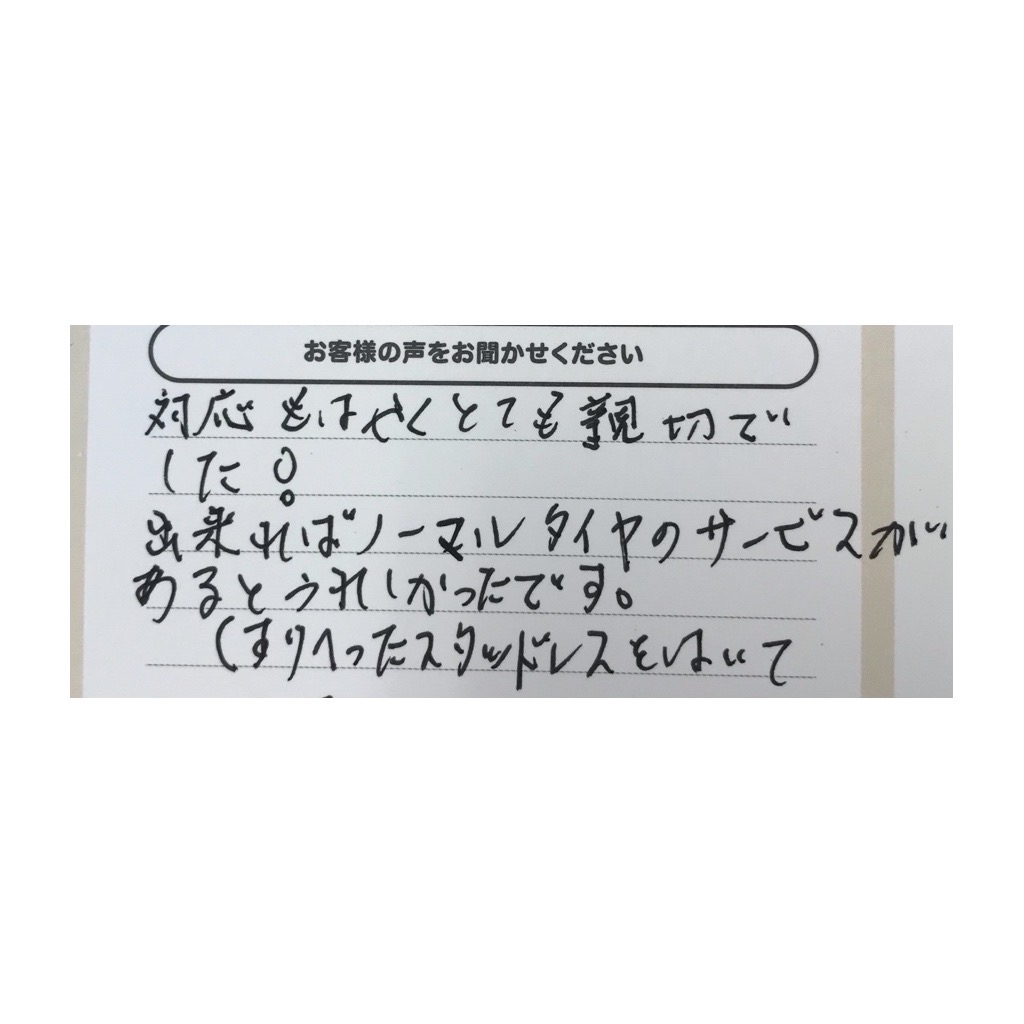 お客様の声をお聞かせください
対応もはやくとても親切で
した!
出来ればノーマルタイヤのサービスが
あるとうれしかったです。
(すりへったスタッドレスをはいて